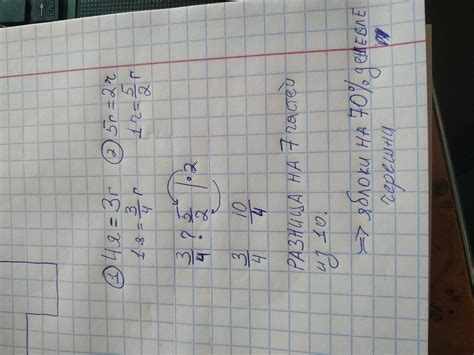 ① 4я = 3г ② 5г = 2ч
1я = 3/4 г 1ч = 5/2 г
3/4 ? 5/2 | · 2
3/4 10/4
РАЗНИЦА НА 7 ЧАСТЕЙ
ИЗ 10.
=> ЯБЛОКИ НА 70% ДЕШЕВЛЕ
черешни